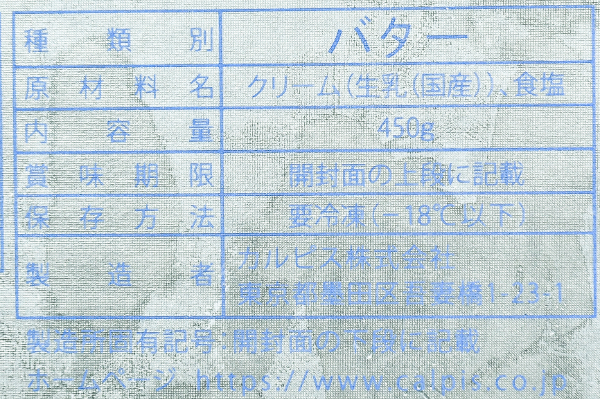 種類別 バター
原材料名 クリーム(生乳(国産))、食塩
内容量 450g
賞味期限 開封面の上段に記載
保存方法 要冷凍(-18℃以下)
製造者 カルピス株式会社
東京都墨田区吾妻橋1-23-1
製造所固有記号 開封面の下段に記載
ホームページ https://www.calpis.co.jp